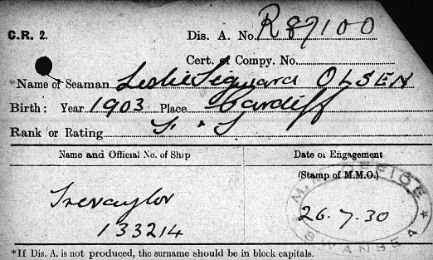 C.R. 2. Dis. A. No. R87100
Cert. of Compy. No.
*Name of Seaman Leslie Seguard OLSEN
Birth: Year 1903 Place Cardiff
Rank or Rating
Name and Official No. of Ship Date of Engagement
(Stamp of M.M.O.)
Trevaylor
133214
26.7.30
M.M. OFFICE
SWANSEA
*If Dis. A. is not produced, the surname should be in block capitals.